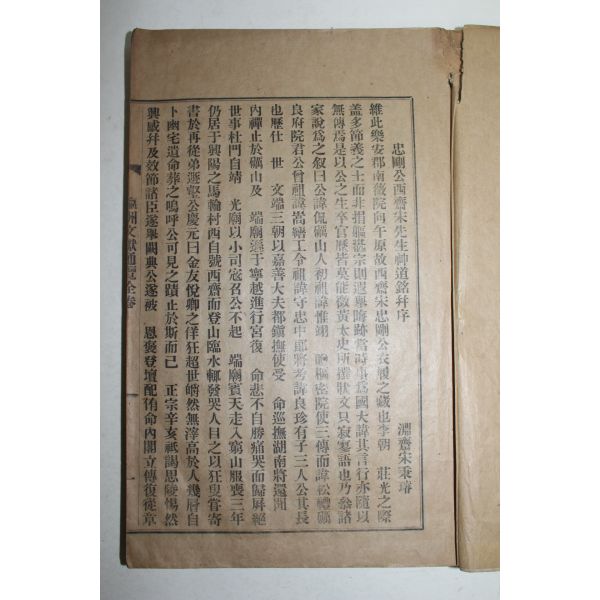 忠剛公西齋宋先生神道銘并序
淵齋宋秉璿
維此樂安郡南薇院向午原故西齋宋忠剛公衣履之藏也李朝 莊光之際
盖多節義之士而非捐軀湛宗則遐舉晦跡當時事爲國大諱其言行亦隨以
無傳焉是以公之生卒官歷皆莫能徵黃太史所撰狀文只寂寥語也乃叅諸
家說爲之叙曰公諱侃礪山人初祖諱惟翊 樞密院使三傳而諱松禮礪
良府院君公曾祖諱 工令祖諱守忠中郎將考諱良珍有子三人公其長
也歷仕 世 文端三朝以嘉善大夫都鎭撫使受 命巡撫湖南將還聞
內禪止於礪山及 端廟遜于寧越進行宮復 命悲不自勝痛哭而歸屛絕
世事杜門自靖 光廟以小司寇召公不起 端廟賓天走入窮山服喪三年
仍居于興陽之馬輪村西自號西齋而登山臨水輒發哭人目之以狂叟嘗寄
書於再從弟遯 公慶元曰金友悅卿之佯狂超世皭然無滓高於人幾層自
卜幽宅遺命葬之嗚呼公可見之蹟止於斯而已 正宗辛亥祗謁思陵惕然
興感并及效節諸臣遂舉闕典公遂被 恩褒登壇配侑命內閣立傳復從章
文獻通 全卷